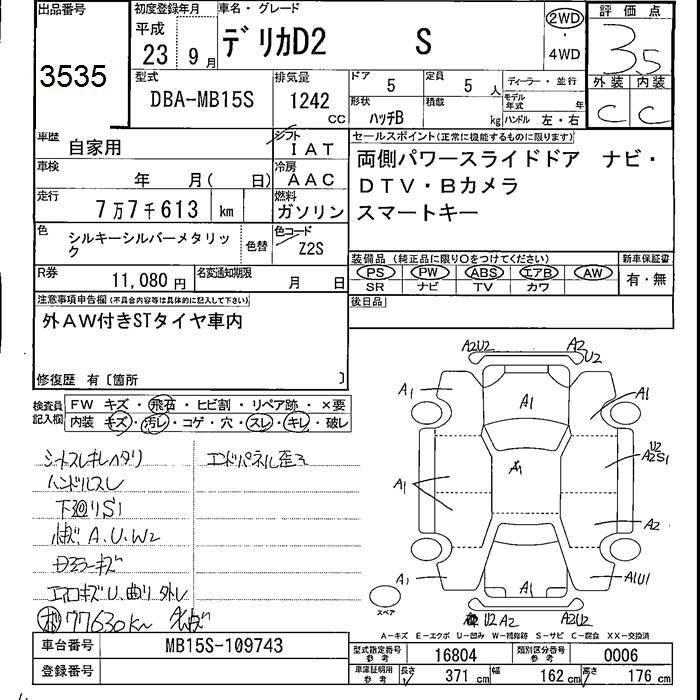 出品番号
3535
初度登録年月
平成
23 9月
車名・グレード
デリカD2 S
2WD
・
4WD
評価点
3.5
外装 内装
C C
型式
DBA-MB15S
排気量
1242
CC
ドア 5
定員 5 人
形状 ハッチB
積載 kg
ディーラー・並行
モデル年式 年
ハンドル 左・右
車歴 自家用
シフト IAT
車検 年 月( 日)
冷房 AAC
走行 7万7千613 km
燃料 ガソリン
色 シルキーシルバーメタリック
色替
色コード Z2S
セールスポイント(正常に機能するものに限ります)
両側パワースライドドア ナビ・
DTV・Bカメラ
スマートキー
R券 11,080 円
名変通知期限 月 日
装備品 (純正品に限り○をつけてください)
PS PW ABS エアB AW
SR ナビ TV カワ
新車保証書
有・無
後日品
注意事項申告欄(不具合内容等は具体的に記入して下さい)
外AW付きSTタイヤ車内
修復歴 有〔箇所 〕
検査員記入欄
FW キズ・飛石・ヒビ割・リペア跡・×要
内装 キズ・汚レ・コゲ・穴・スレ・キレ・破レ
シートスレキレヘタリ
ハンドルスレ
下廻りS1
A.U.W2
ミラーキズ
エアロキズU.曲り外レ
77630km
エンドパネル歪み
A2U2 A2
U2
A1 A1 A1
A1
A1
U2
A2S1
A2
A1 A1 A1U1
U2 A2 A2U2
スペア
A-キズ E-エクボ U-凹み W-補修跡 S-サビ C-腐食 XX-交換済
車台番号 MB15S-109743
登録番号
型式指定番号 参考 16804
類別区分番号 参考 0006
車庫証明用 参考 長さ 371 cm 幅 162 cm 高さ 176 cm